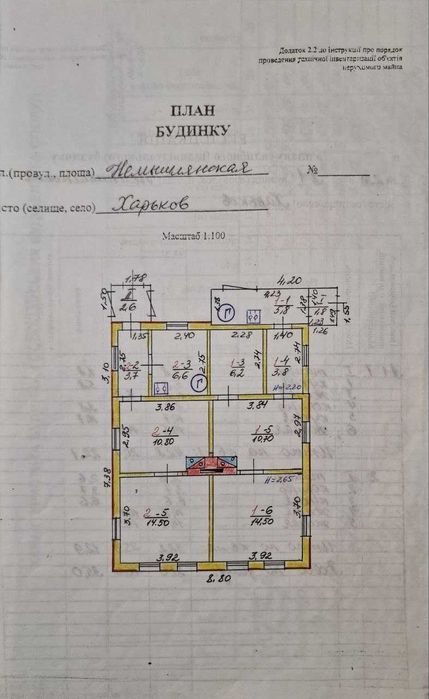 Додаток 2.2 до Інструкції про порядок
проведення технічної інвентаризації об'єктів
нерухомого майна
ПЛАН
БУДИНКУ
л.(провул., площа) Немышлянская №
сто (селище, село) Харьков
Масштаб 1:100
1,78
4,20
1,50
2,6
2,23
1-1
5,8
I
1,8
1,55
1,23
1,26
Г
1,35
2,40
2,28
1,40
3,10
2,75
2-2
3,7
2-3
6,6
2,75
1-3
6,2
2,74
1-4
3,8
2,74
Г
H=2,20
3,86
3,84
2,95
2-4
10,80
1-5
10,70
2,97
7,38
H=2,65
3,70
2-5
14,50
1-6
14,50
3,70
3,92
3,92
8,80